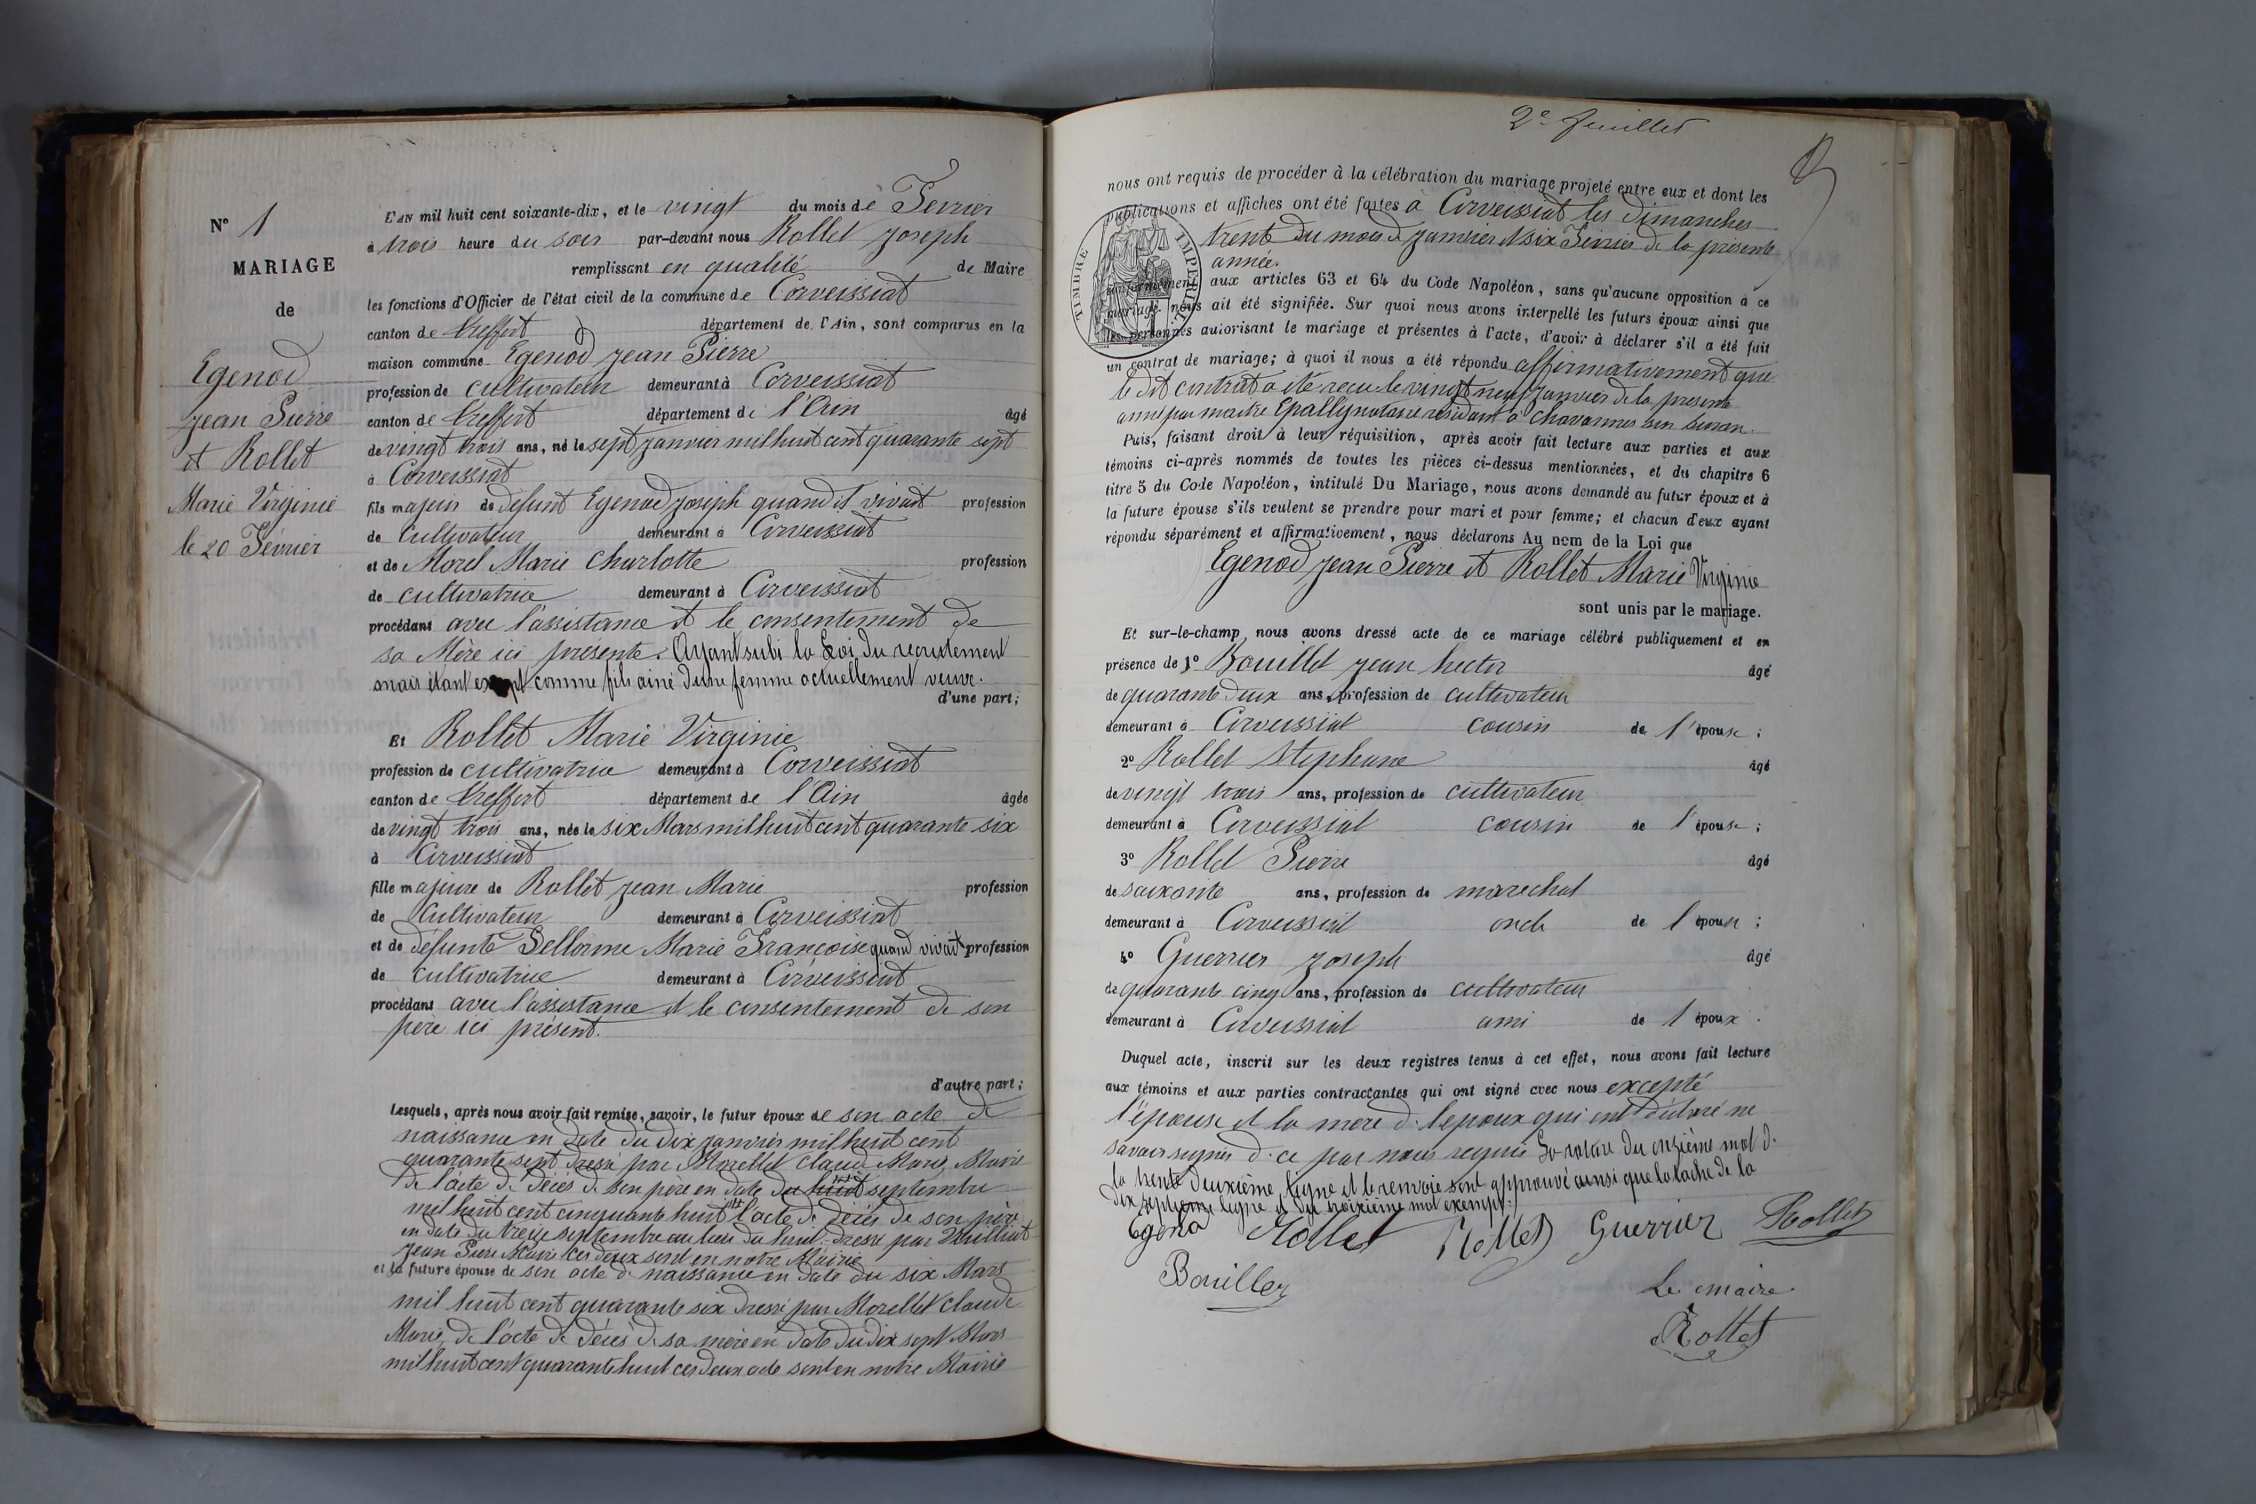 N° 1
MARIAGE
de
Egenod
Jean Pierre
et Rollet
Marie Virginie
le 20 Février
L'AN mil huit cent soixante-dix, et le vingt du mois de Fevrier
à trois heure du soir par-devant nous Rollet Joseph
remplissant en qualité de Maire
les fonctions d'Officier de l'état civil de la commune de Corveissiat
canton de Treffort département de l'Ain, sont comparus en la
maison commune Egenod Jean Pierre
profession de cultivateur demeurant à Corveissiat
canton de Treffort département de l'Ain âgé
de vingt trois ans, né le sept Janvier mil huit cent quarante sept
à Corveissiat
fils majeur de défunt Egenod Joseph quand il vivait profession
de Cultivateur demeurant à Corveissiat
et de Morel Marie Charlotte profession
de cultivatrice demeurant à Corveissiat
procédant avec l'assistance et le consentement de
sa Mère ici presente. Ayant subi la Loi du recrutement
mais étant exempt comme fils ainé d'une femme actuellement veuve.
d'une part;
Et Rollet Marie Virginie
profession de cultivatrice demeurant à Corveissiat
canton de Treffort département de l'Ain âgée
de vingt trois ans, née le six Mars mil huit cent quarante six
à Corveissiat
fille majeure de Rollet Jean Marie profession
de Cultivateur demeurant à Corveissiat
et de défunte Marie Françoise quand vivait profession
de Cultivatrice demeurant à Corveissiat
procédant avec l'assistance et le consentement de son
père ici présent.
d'autre part;
Lesquels, après nous avoir fait remise, savoir, le futur époux de son acte de
naissance en date du dix Janvier mil huit cent
quarante sept dressé par Morellet Claude Marie, Maire
de l'acte de décès de son père en date du huit septembre
mil huit cent cinquante huit l'acte de décès de son père
en date du treize septembre au lieu du huit dressé par
Jean Pierre Maire ces deux sont en notre Mairie
et la future épouse de son acte de naissance en date du six Mars
mil huit cent quarante six dressé par Morellet Claude
Marie, de l'acte de décès de sa mère en date du dix sept Mars
mil huit cent quarante huit ces deux acte sont en notre Mairie
2e feuillet
nous ont requis de procéder à la célébration du mariage projeté entre eux et dont les
publications et affiches ont été faites à Corveissiat les dimanches
trente du mois de Janvier et six Fevrier de la présente
année.
conformément aux articles 63 et 64 du Code Napoléon, sans qu'aucune opposition à ce
mariage nous ait été signifiée. Sur quoi nous avons interpellé les futurs époux ainsi que
les personnes autorisant le mariage et présentes à l'acte, d'avoir à déclarer s'il a été fait
un contrat de mariage; à quoi il nous a été répondu affirmativement que
le dit contrat a été reçu le vingt neuf Janvier de la presente
année par maître notaire résidant à Chavannes sur Suran.
TIMBRE IMPERIAL
Puis, faisant droit à leur réquisition, après avoir fait lecture aux parties et aux
témoins ci-après nommés de toutes les pièces ci-dessus mentionnées, et du chapitre 6
titre 5 du Code Napoléon, intitulé Du Mariage, nous avons demandé au futur époux et à
la future épouse s'ils veulent se prendre pour mari et pour femme; et chacun d'eux ayant
répondu séparément et affirmativement, nous déclarons Au nom de la Loi que
Egenod Jean Pierre et Rollet Marie Virginie
sont unis par le mariage.
Et sur-le-champ nous avons dressé acte de ce mariage célébré publiquement et en
présence de 1° Bouillet Jean hector âgé
de quarante deux ans, profession de cultivateur
demeurant à Corveissiat cousin de l'épouse;
2° Rollet Stephane âgé
de vingt trois ans, profession de cultivateur
demeurant à Corveissiat cousin de l'épouse;
3° Rollet Pierre âgé
de soixante ans, profession de marechal
demeurant à Corveissiat oncle de l'épouse;
4° Guerrier Joseph âgé
de quarante cinq ans, profession de cultivateur
demeurant à Corveissiat ami de l'époux.
Duquel acte, inscrit sur les deux registres tenus à cet effet, nous avons fait lecture
aux témoins et aux parties contractantes qui ont signé avec nous excepté
l'épouse et la mere de l'epoux qui ont déclaré ne
savoir signer de ce par nous requis La rature du onzième mot de
la trente deuxième ligne et le renvoie sont approuvé ainsi que la tache de la
dix septième ligne et du troisième mot exempt.
Egeno Rollet Rollet Guerrier Rollet
Bouillet
Le maire
Rollet